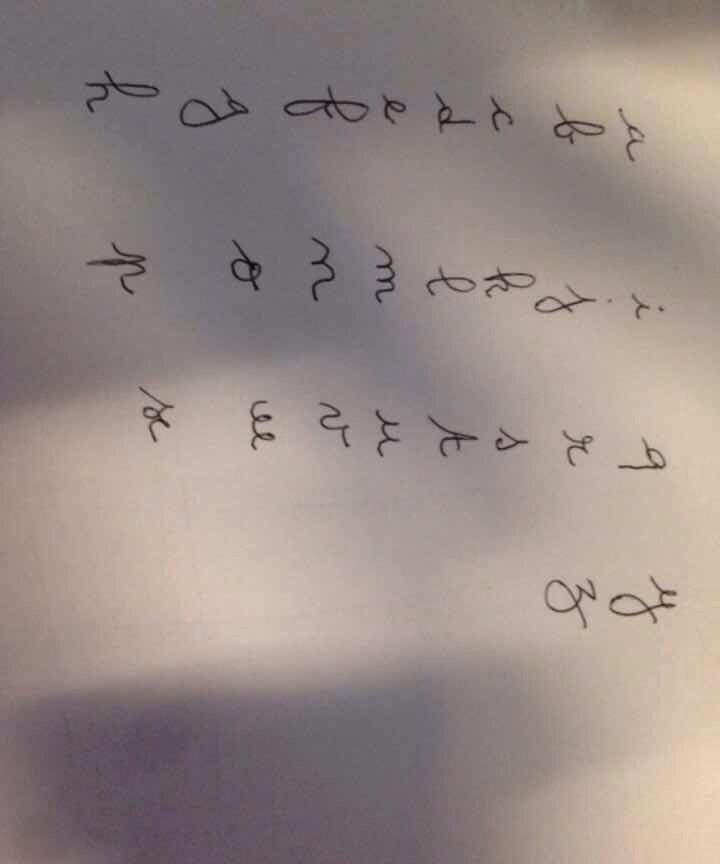 a i q y
b j r z
c k s
d l t
e m u
f n v
g o w
h p x